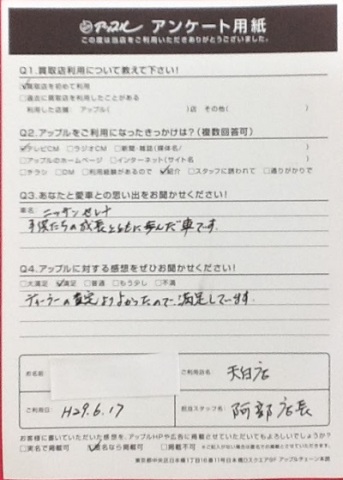 アップル アンケート用紙
この度は当店をご利用いただきありがとうございました。
Q1.買取店利用について教えて下さい!
☑買取店を初めて利用
□過去に買取店を利用したことがある
利用した店舗:アップル( )店 その他( )
Q2.アップルをご利用になったきっかけは?(複数回答可)
☑テレビCM □ラジオCM □新聞・雑誌(媒体名/ )
□アップルのホームページ □インターネット(サイト名 )
□チラシ □DM □利用経験があるので ☑紹介 □スタッフに誘われて □通りがかりで
Q3.あなたと愛車との思い出をお聞かせください!
車名: ニッサン セレナ
子供たちの成長とともに歩んだ車です。
Q4.アップルに対する感想をぜひお聞かせください!
□大満足 ☑満足 □普通 □もう少し □不満
ディーラーの査定よりよかったので、満足しています。
お名前
ご利用店名 天白店
ご利用日: H29.6.17
担当スタッフ名: 阿部店長
お客様に書いていただいた感想を、アップルHPや広告に掲載させていただいてもよろしいでしょうか?
□実名で掲載可 ☑匿名なら掲載可 □掲載不可
東京都中央区日本橋1丁目16番11号日本橋DスクエアBF アップルチェーン本部